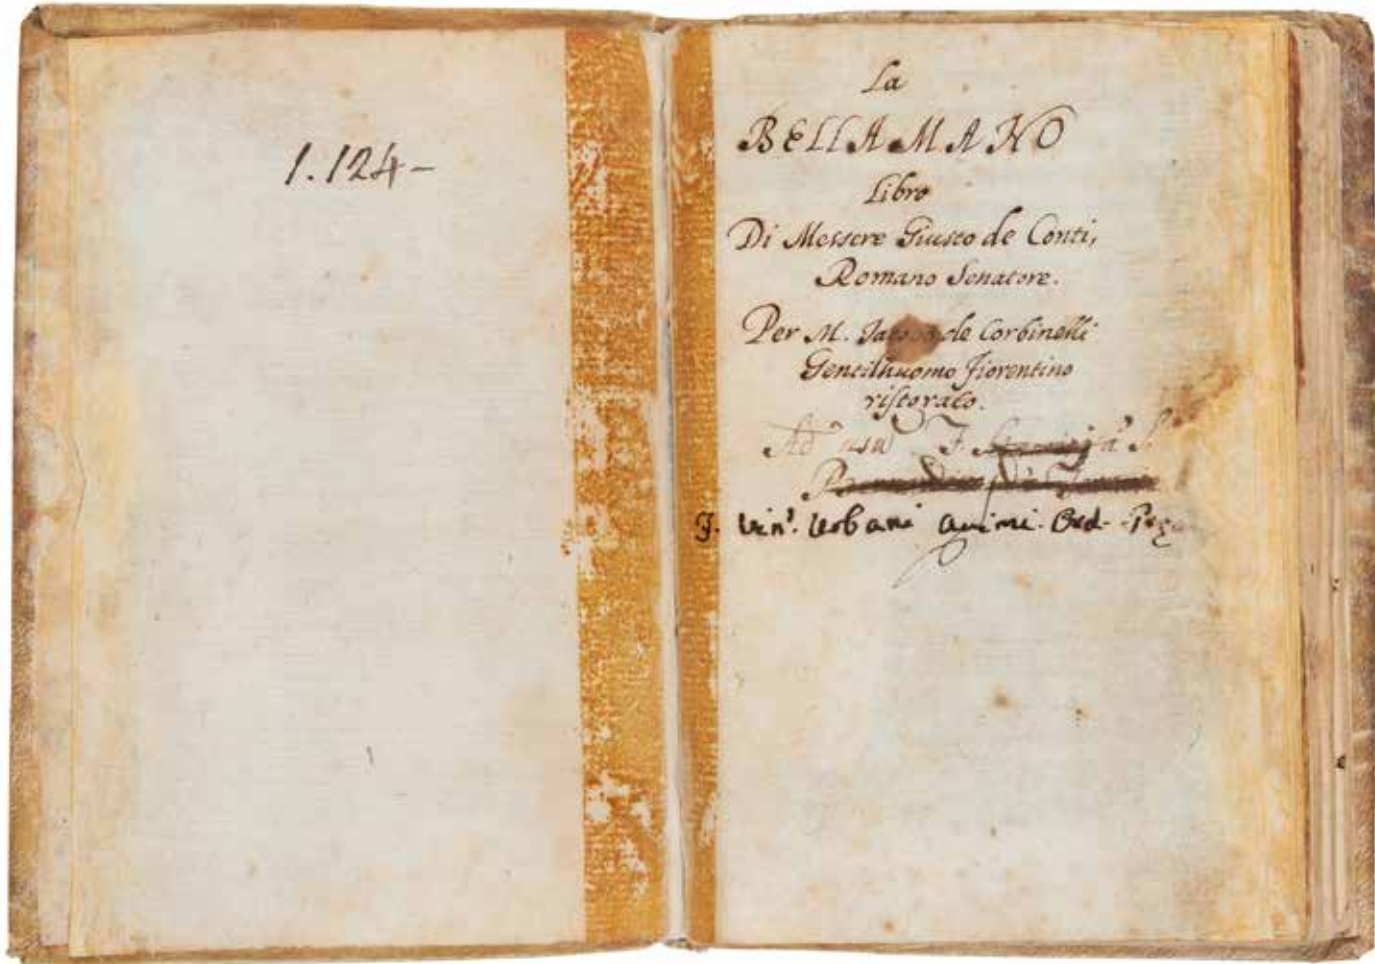 1.124-
La
BELLA MANO
Libro
Di Messere Giusto de Conti,
Romano Senatore.
Per M. Jacopo de Corbinelli
Gentilhuomo Fiorentino
ristorato.
Ad usu F.
F. Vin. Urbani Ord.